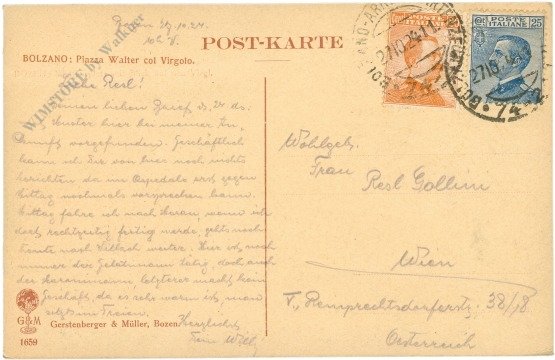 Bozen 27.10.24.
10h V.
POST-KARTE
BOLZANO: Piazza Walter col Virgolo.
WIMSTORE by Walkner
POSTE ITALIANE
POSTE 25
ITALIANE
BOLZANO-ARRIVI
27.10.24
74
Liebe Resl!
Deinen lieben Brief v. 24 ds.
hier bei meiner An-
kunft vorgefunden. Geschäftlich
kann ich Dir von hier noch nichts
berichten da im Ospedale erst gegen
Mittag nochmals vorsprechen kann.
Mittag fahre ich nach Meran, wenn ich
dort rechtzeitig fertig werde, gehts noch
heute nach Villach weiter. Hier ist noch
immer der tätig doch auch
der letzterer macht kein
Geschäft, da es sehr warm ist, man
sitzt im Freien.
Herzlichst
Dein Willy
Wohlgeb.
Frau
Resl Gollini
Wien
V. Ramperstorfferstr. 38/18
Österreich
G&M
1659
Gerstenberger & Müller, Bozen.